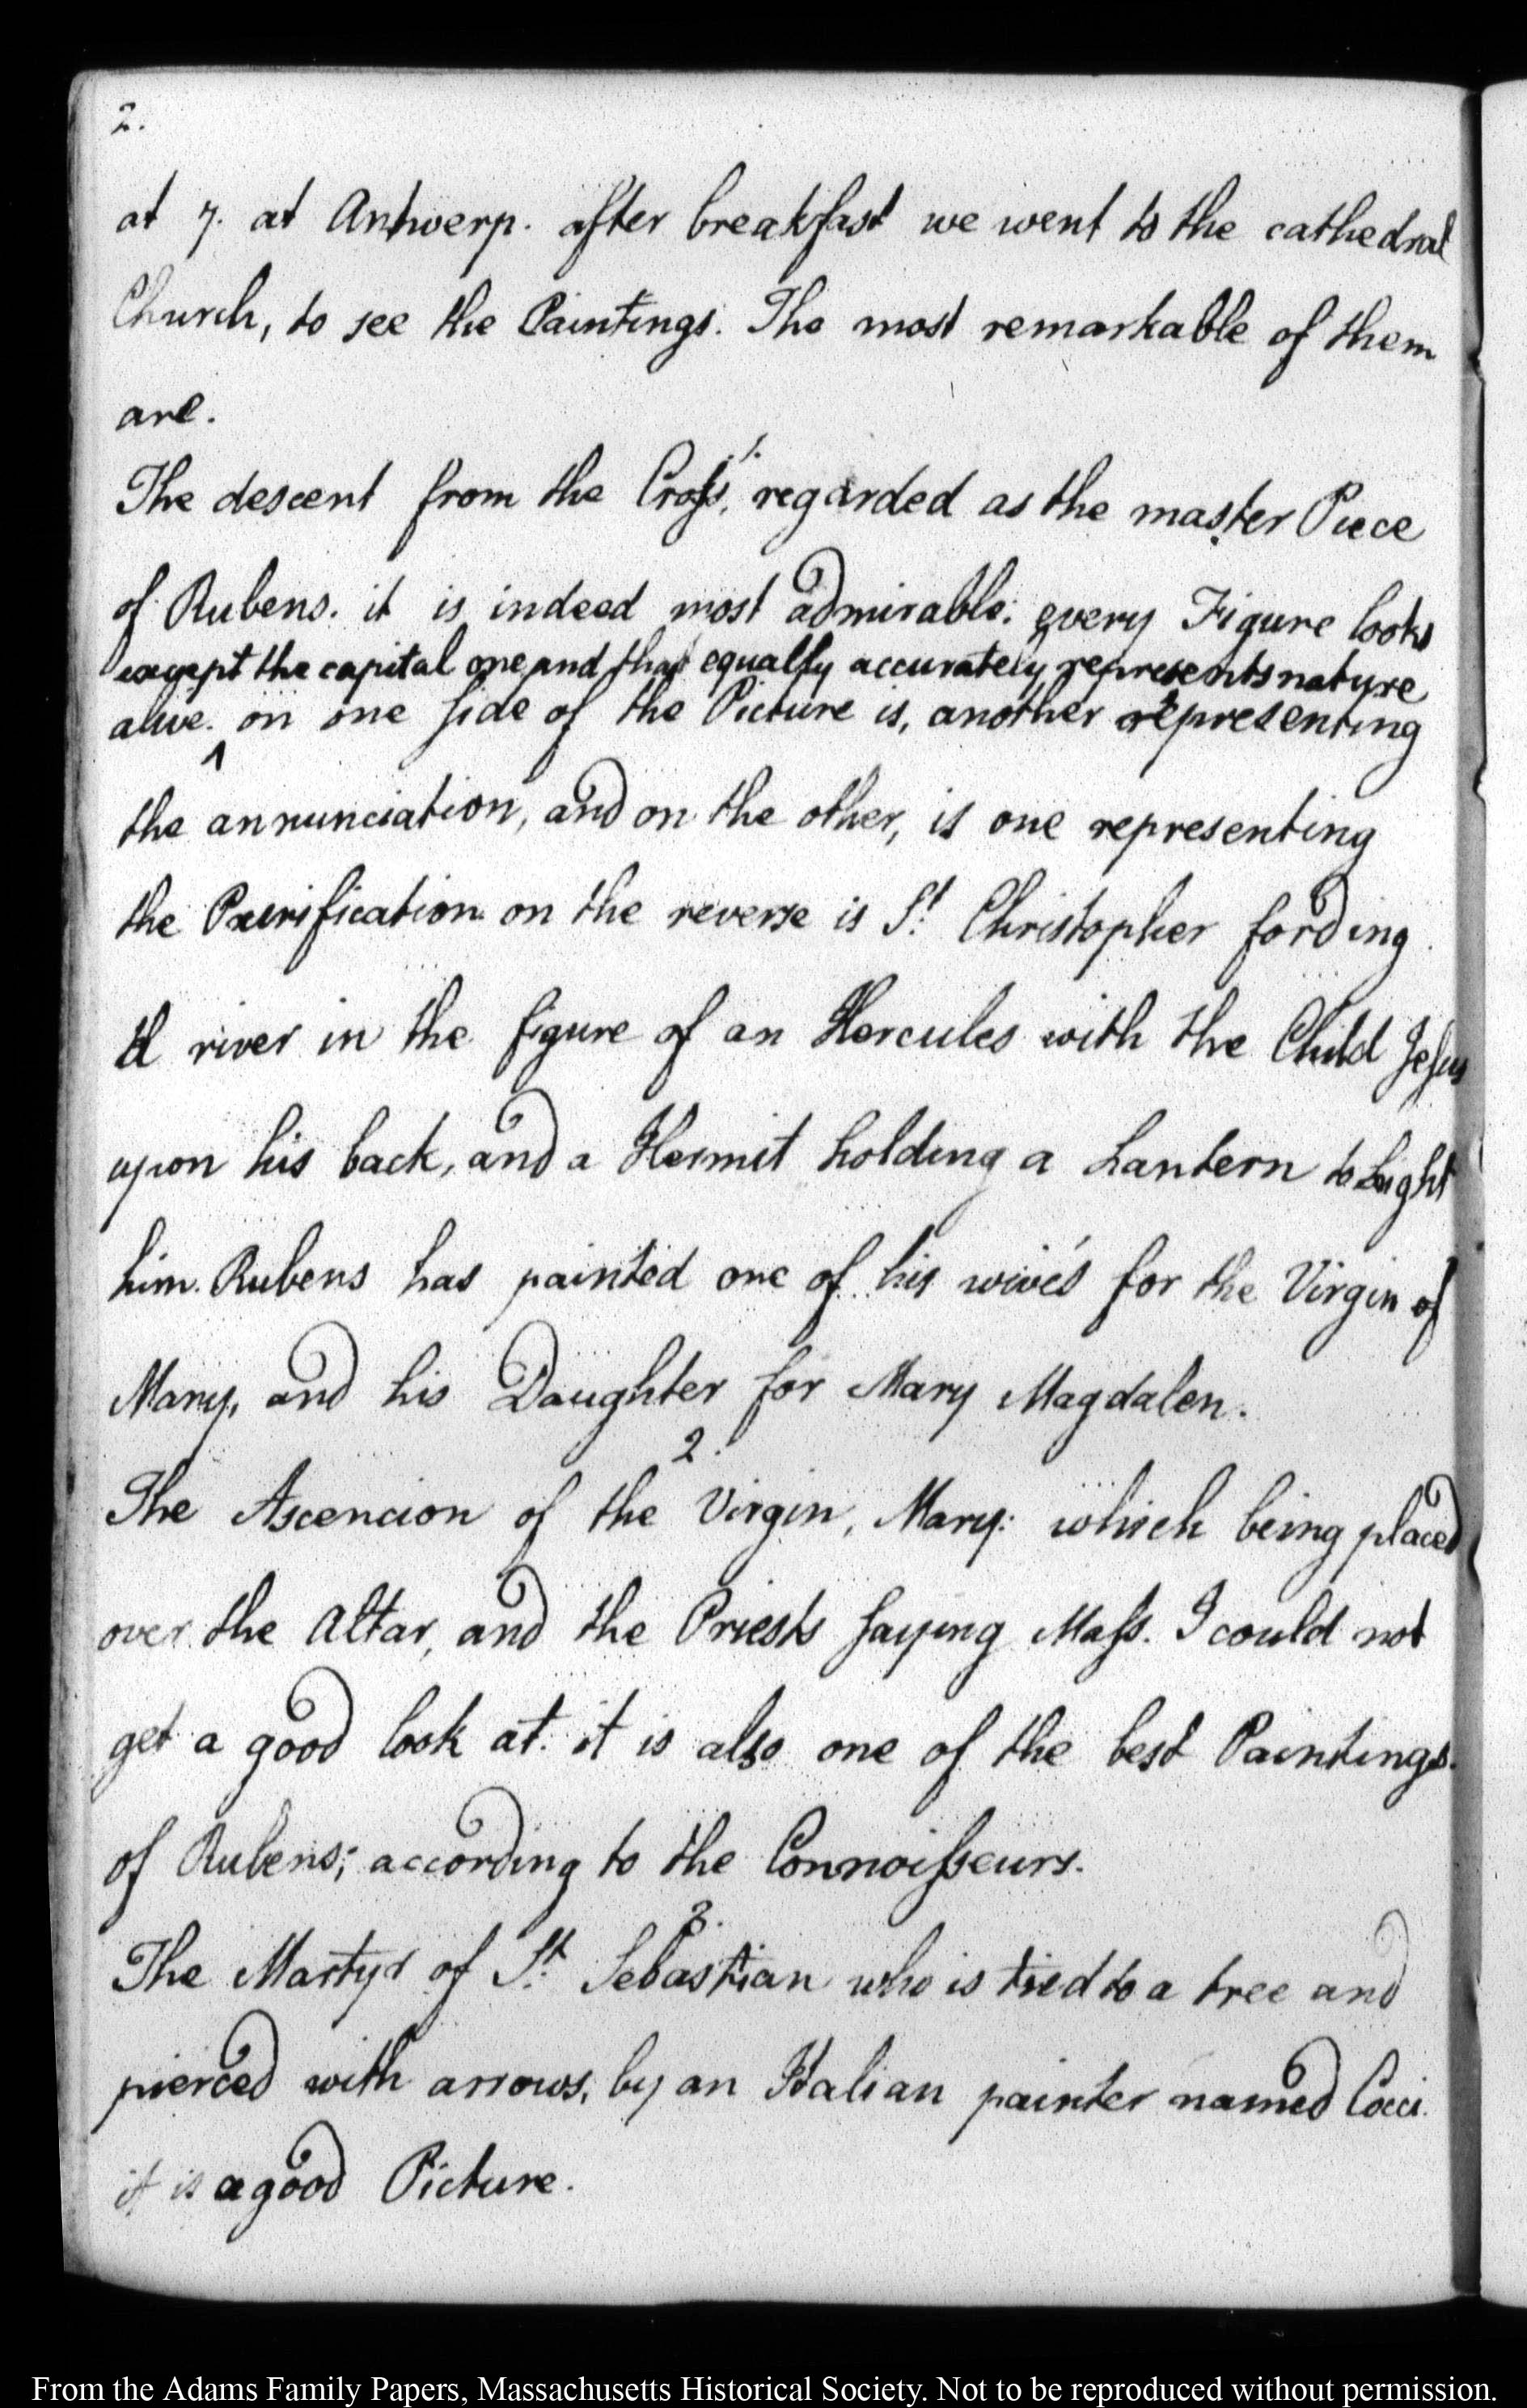 2.
at 7. at Antwerp. after breakfast we went to the cathedral
Church, to see the Paintings. The most remarkable of them
are.
1.
The descent from the Cross, regarded as the master Piece
of Rubens. it is indeed most admirable: every Figure looks
except the capital one and that equally accurately represents nature
alive. ^ on one side of the Picture is, another representing
the annunciation, and on the other, is one representing
the Purification on the reverse is St. Christopher fording
river in the figure of an Hercules with the Child Jesus
upon his back, and a Hermit holding a Lantern to Light
him. Rubens has painted one of his wive's for the Virgin of
Mary, and his Daughter for Mary Magdalen.
2.
The Ascencion of the Virgin, Mary: which being placed
over the Altar, and the Priests saying Mass. I could not
get a good look at. it is also one of the best Paintings.
of Rubens; according to the Connoisseurs.
3.
The Martyr of St. Sebastian who is tied to a tree and
pierced with arrows, by an Italian painter named Cocci.
it is a good Picture.
From the Adams Family Papers, Massachusetts Historical Society. Not to be reproduced without permission.